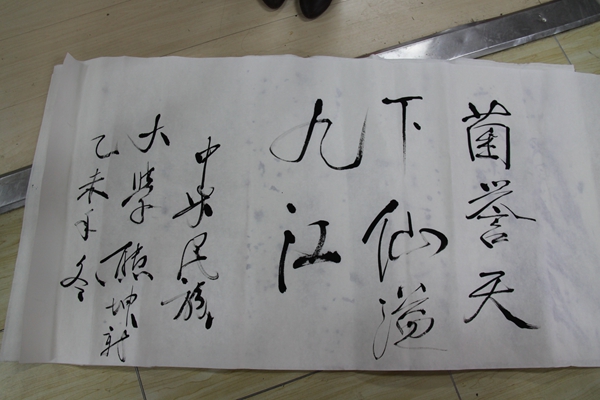 菌誉天
下仙溢
九江
中央民族
大學 熊坤新
乙未年冬